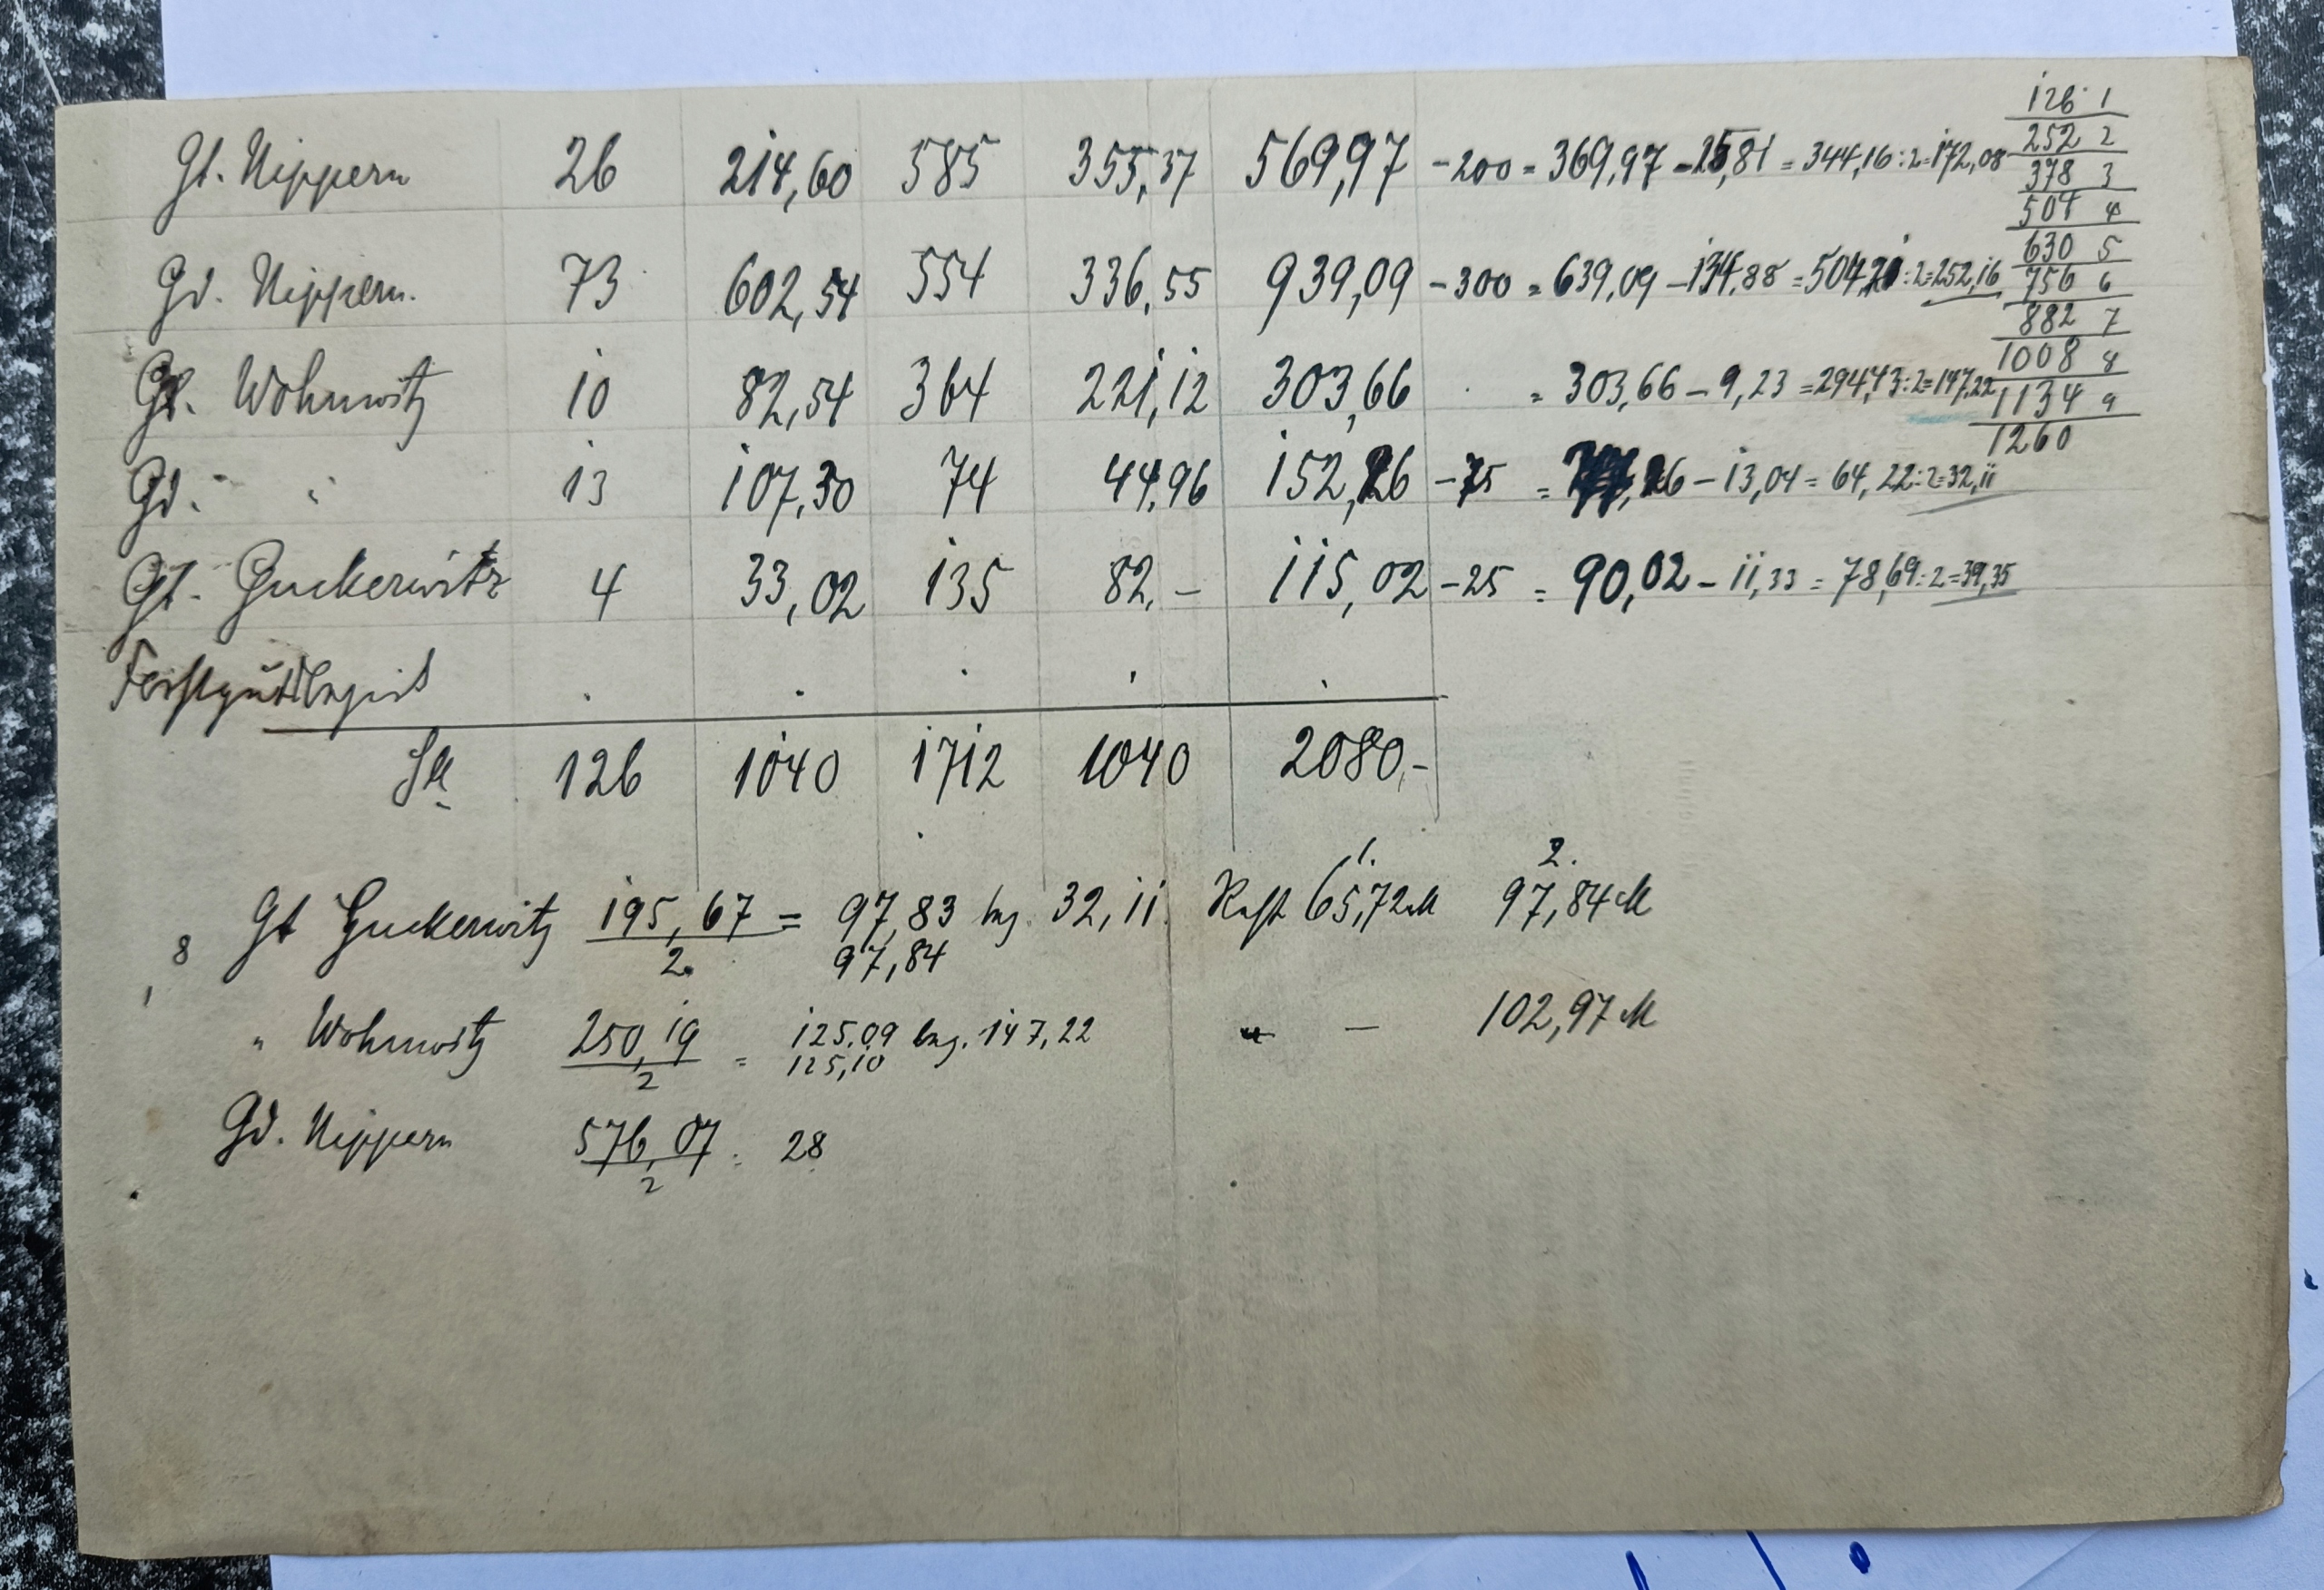 Gt. Nippern 26 214,60 585 355,37 569,97 - 200 = 369,97 - 25,81 = 344,16 : 2 = 172,08
Gd. Nippern. 73 602,54 554 336,55 939,09 - 300 = 639,09 - 134,88 = 504,21 : 2 = 252,16
Gt. Wohnwitz 10 82,54 364 221,12 303,66 = 303,66 - 9,23 = 294,43 : 2 = 147,22
Gd. " 13 107,30 74 44,96 152,26 - 75 = 77,26 - 13,04 = 64,22 : 2 = 32,11
Gt. Guckerwitz 4 33,02 135 82,- 115,02 - 25 = 90,02 - 11,33 = 78,69 : 2 = 39,35
. . . . .
Sa 126 1040 1712 1040 2080,-
126 1
252 2
378 3
504 4
630 5
756 6
882 7
1008 8
1134 9
1260
1. 2.
Gt Guckerwitz 195,67 = 97,83 bez. 32,11. Rest 65,72 M 97,84 M
8 2. 97,84
" Wohnwitz 250,19 = 125,09 bez. 147,22 — 102,97 M
2 125,10
Gd. Nippern 576,07 = 28
2